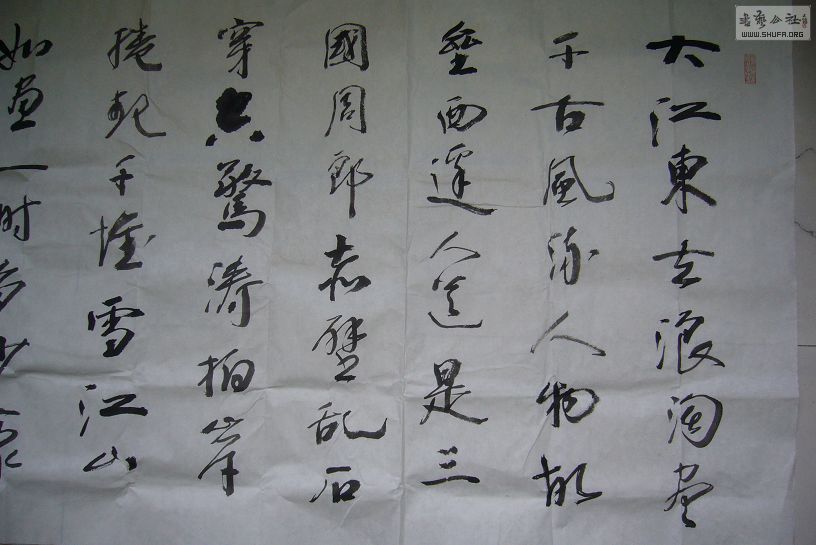 大江東去浪淘盡
千古風流人物故
壘西邊人道是三
國周郎赤壁乱石
穿空驚濤拍岸
捲起千堆雪江山
如画一时多少豪
书艺公社
WWW.SHUFA.ORG